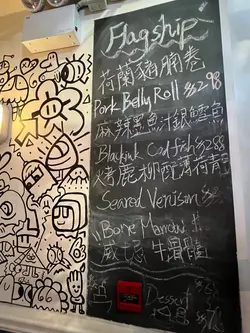 Flagship
荷蘭豬腩卷
Pork Belly Roll $298
麻辣墨魚汁銀鱈魚
Blackink Codfish $288
烤鹿柳配薄荷青
Seared Venison
Bone Marrow
威士忌 牛骨髓
Dessert